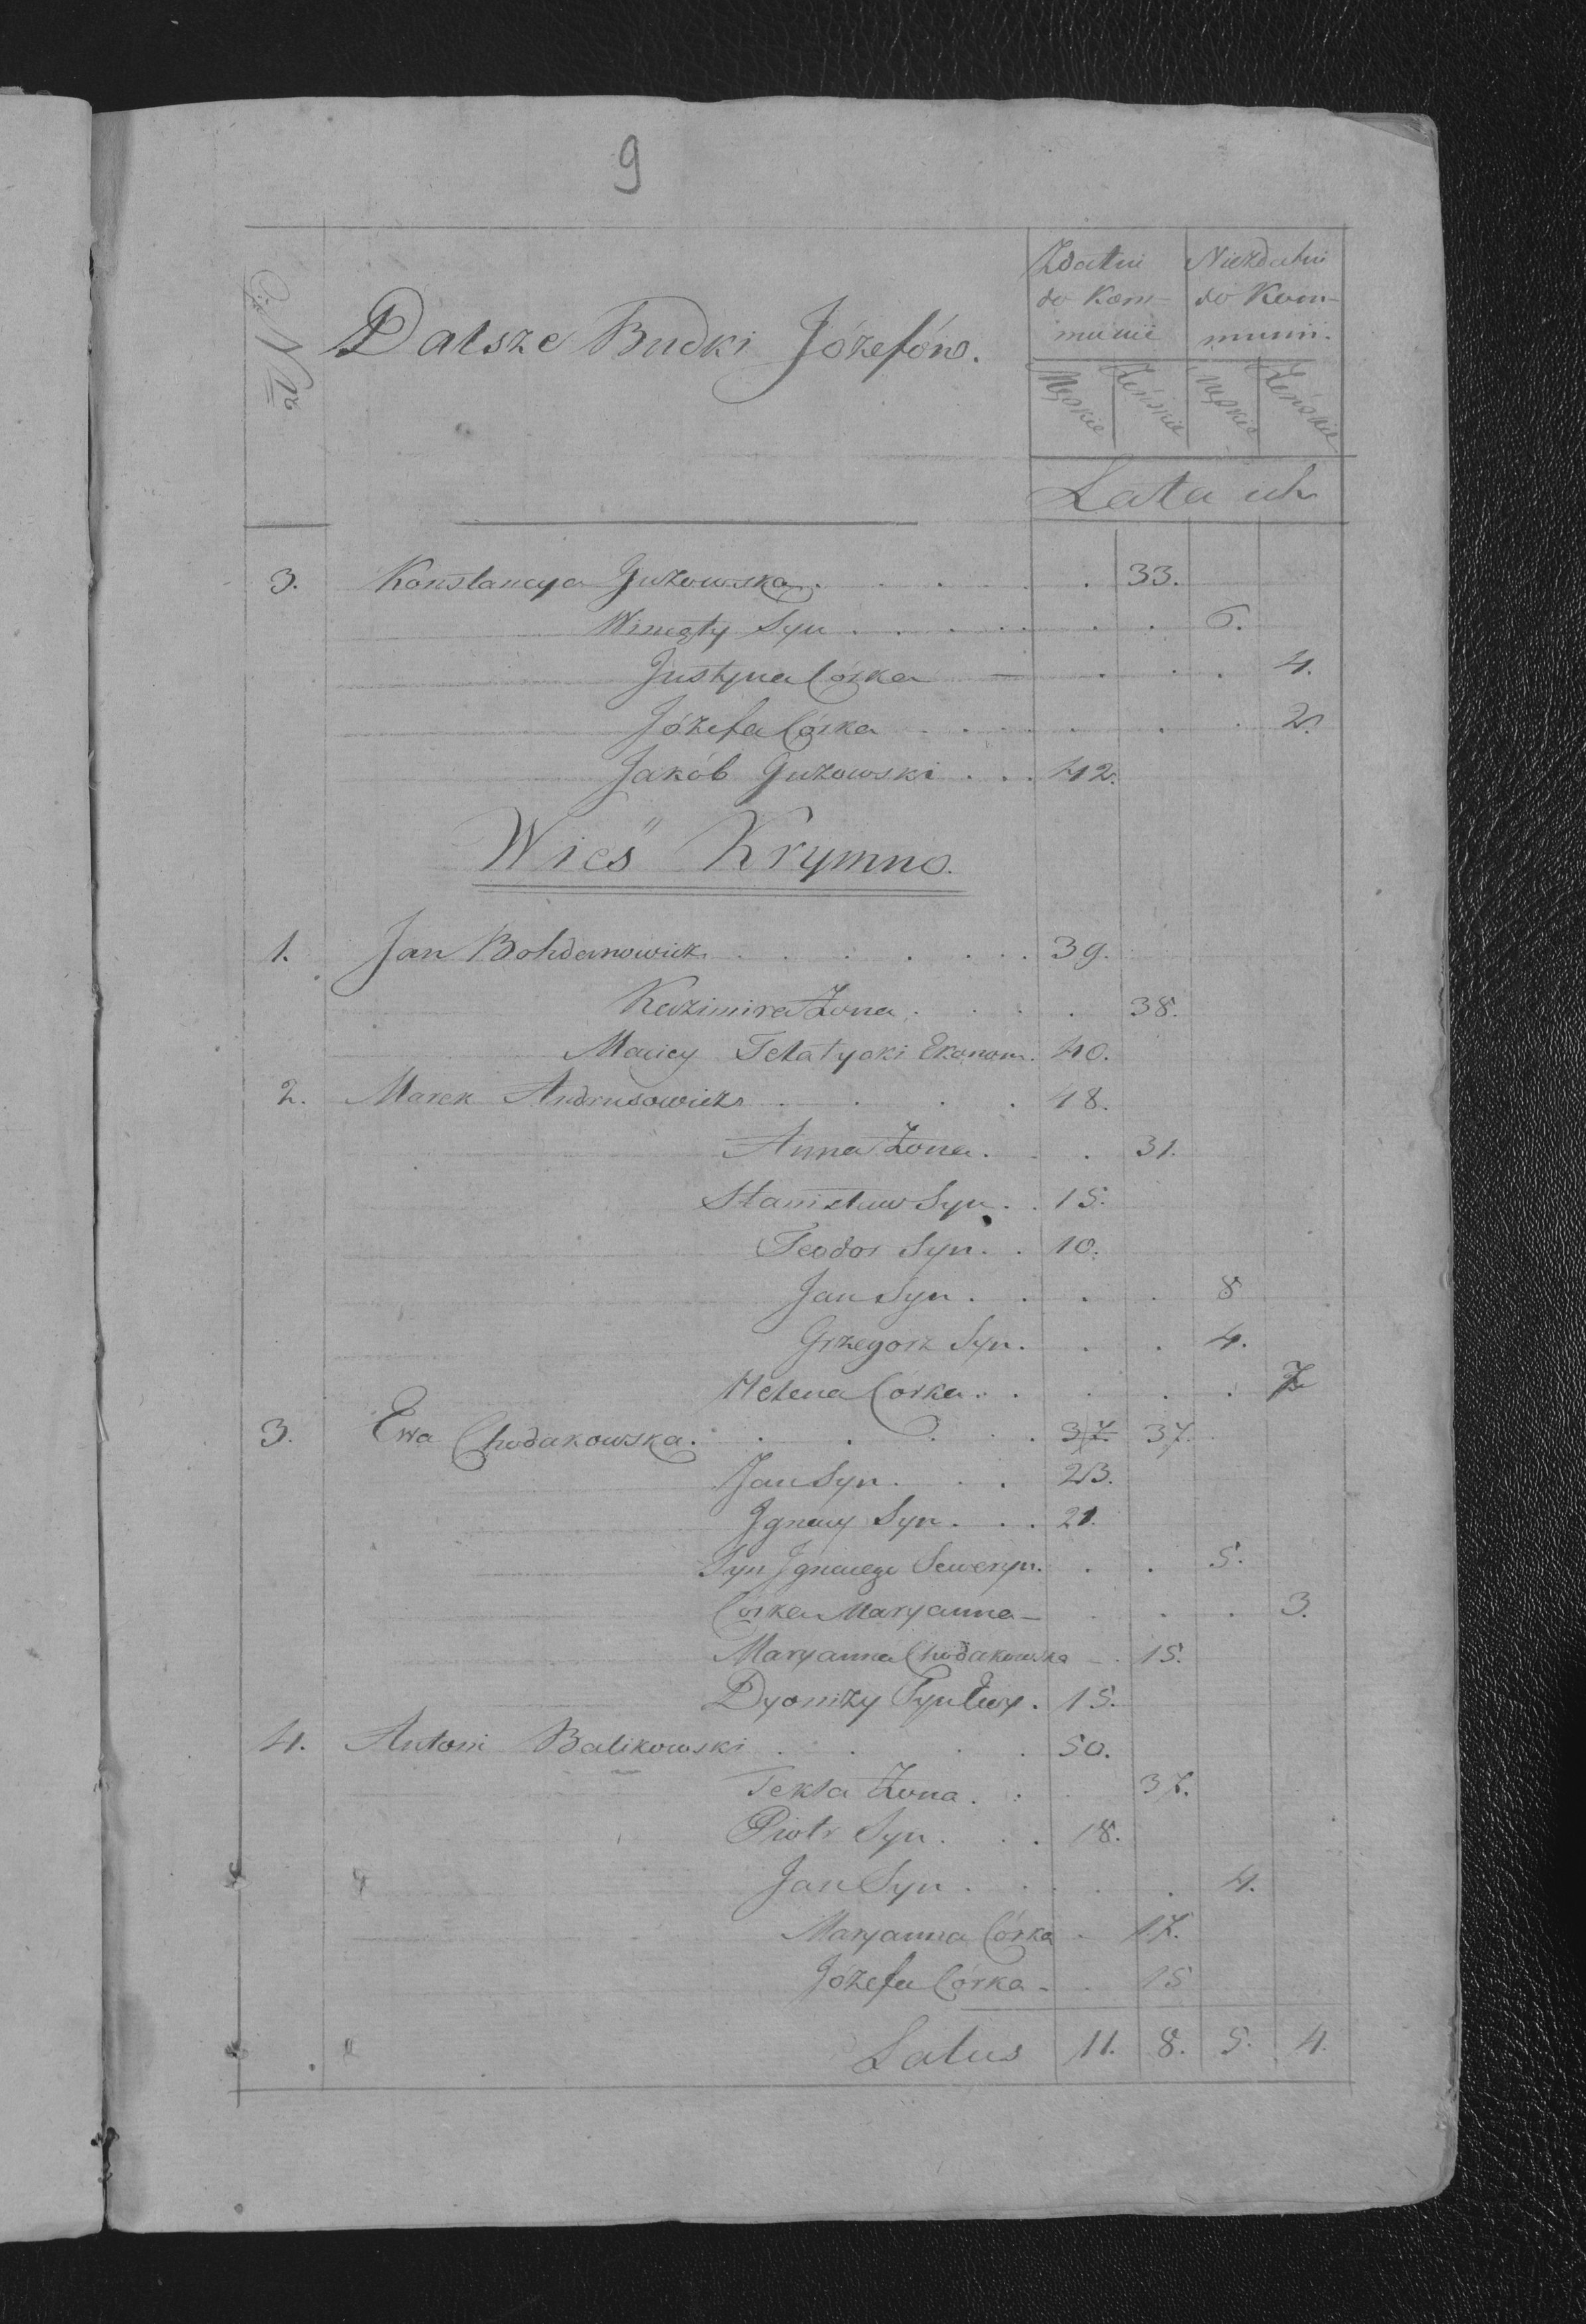 9
Nr
Dalsze Budki Józefów.
Zdatni do Kommunii
Niezdatni do Kommunii.
Męskie Żeńskie Męskie Żeńskie
Lata ich
3. Konstancya Guzowska . . . . . 33.
Wincęty Syn . . . . . . 6.
Justyna Córka — . . . 4.
Józefa Córka . . . . . . 2.
Jakób Guzowski . . . 42.
Wieś Krymno.
1. Jan Bohdanowicz . . . . . . 39.
Kazimira Żona . . . . 38.
Maciey Telatycki Ekonom. 40.
2. Marek Andrusowicz . . . . 48.
Anna Żona . . . 31.
Stanisław Syn . . 15.
Teodor Syn . . 10.
Jan Syn . . . . 8
Grzegorz Syn . . . 4.
Helena Córka . . . . . 7
3. Ewa Chodakowska . . . . . . 37. 37.
Jan Syn . . . 23.
Ignacy Syn . . . 21.
Syn Ignacego Seweryn . . . 5.
Córka Maryanna — . . . 3.
Maryanna Chodakowska — . 15.
Dyonizy Syn Ewy . 15.
4. Antoni Balikowski . . . . 50.
Tekla Żona . . . 37.
Piotr Syn . . . 18.
Jan Syn . . . . . 4.
Maryanna Córka . 17.
Józefa Córka — . 15
Latus 11. 8. 5. 4.